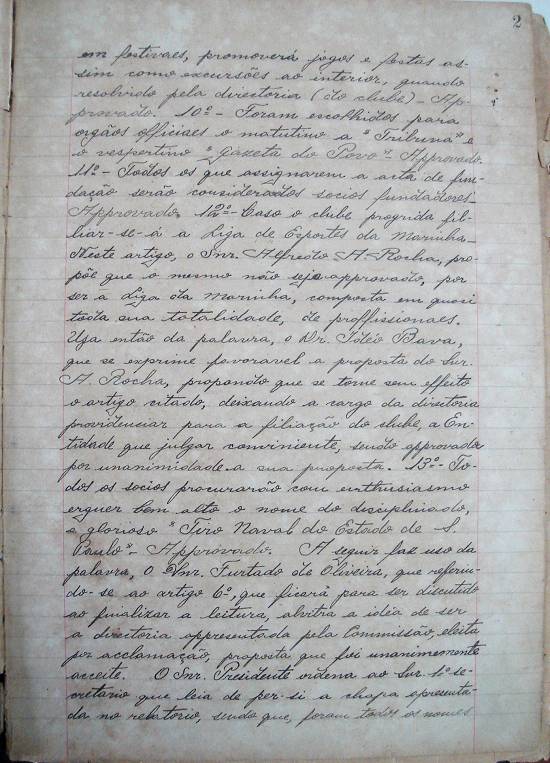 2
em festivaes, promoverá jogos e festas as-
sim como excursões ao interior, quando
resolvido pela directoria (do clube) - Ap-
provado. 10º - Foram escolhidos para
orgãos officiaes o matutino a "Tribuna" e
o vespertino "Gazeta do Povo" - Approvado.
11º - Todos os que assignarem a acta de fun-
dação serão considerados socios fundadores -
Approvado. 12º - Caso o clube progrida fil-
liar-se-á a Liga de Esportes da Marinha -
Neste artigo, o Snr. Alfredo A. Rocha, pro-
põe que o mesmo não seja approvado, por
ser a Liga da Marinha, composta em quasi
toda sua totalidade, de proffissionaes.
Usa então da palavra, o Dr. Bava,
que se exprime favoravel a proposta do Snr.
A. Rocha, propondo que se torne sem effeito
o artigo citado, deixando a cargo da diretoria
providenciar para a filiação do clube, a En-
tidade que julgar conviniente, sendo approvada
por unanimidade a sua proposta. 13º - To-
dos os socios procurarão com enthusiasmo
erguer bem alto o nome do disciplinado,
e glorioso "Tiro Naval do Estado de S.
Paulo" - Approvado. A seguir faz uso da
palavra, o Snr. Furtado de Oliveira, que referin-
do-se ao artigo 6º, que ficará para ser discutido
ao finalizar a leitura, alvitra a idéa de ser
a directoria appresentada pela Commissão, eleita
por acclamação, proposta que foi unanimemente
acceite. O Snr. Presidente ordena ao Snr. 1º se-
cretario que leia de per-si a chapa apresenta-
da no relatorio, sendo que, foram todos os nomes